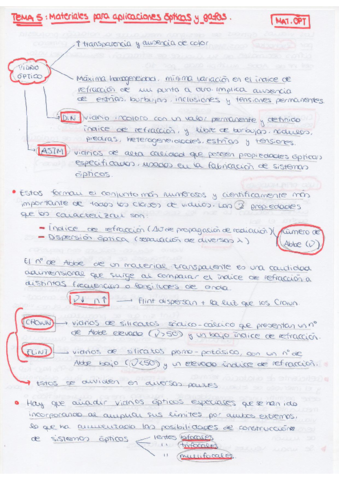 TEMA 5: Materiales para aplicaciones ópticas y gafas.
MAT. OPT
↑ transparencia y ausencia de color
VIDRIO ÓPTICO
Máxima homogeneidad, mínima variación en el índice de
refracción de un punto a otro implica ausencia
de estrías, burbujas, inclusiones y tensiones permanentes
DIN vidrio incoloro con un valor permanente y definido
índice de refracción, y libre de burbujas, nódulos,
piedras, heterogeneidades, estrías y tensiones
ASTM vidrios de alta calidad que poseen propiedades ópticas
especificadas, usados en la fabricación de sistemas
ópticos
* Estos forman el conjunto más numeroso y científicamente más
importante de todas las clases de vidrios, con 2 propiedades
que los caracterizan son:
- Índice de refracción (de propagación de radiación)
- Dispersión óptica (de diversas λ)
número de Abbe (ν)
El nº de Abbe de un material transparente es una cantidad
adimensional que surge al comparar el índice de refracción a
distintas frecuencias o longitudes de onda.
ν↓ n↑ → Flint dispersan + la luz que los Crown
CROWN vidrios de silicatos sódico-cálcico que presentan un nº
de Abbe elevado (ν>50) y un bajo índice de refracción
FLINT vidrios de silicatos plomo-potásico, con un nº de
Abbe bajo (ν<50) y un elevado índice de refracción.
↳ Estos se dividen en diversos
• Hay que añadir vidrios ópticos especiales que se han ido
incorporando al ampliar sus límites por ambos extremos,
lo que ha aumentado las posibilidades de construcción
de sistemas ópticos
lentes bifocales
" trifocales
" multifocales